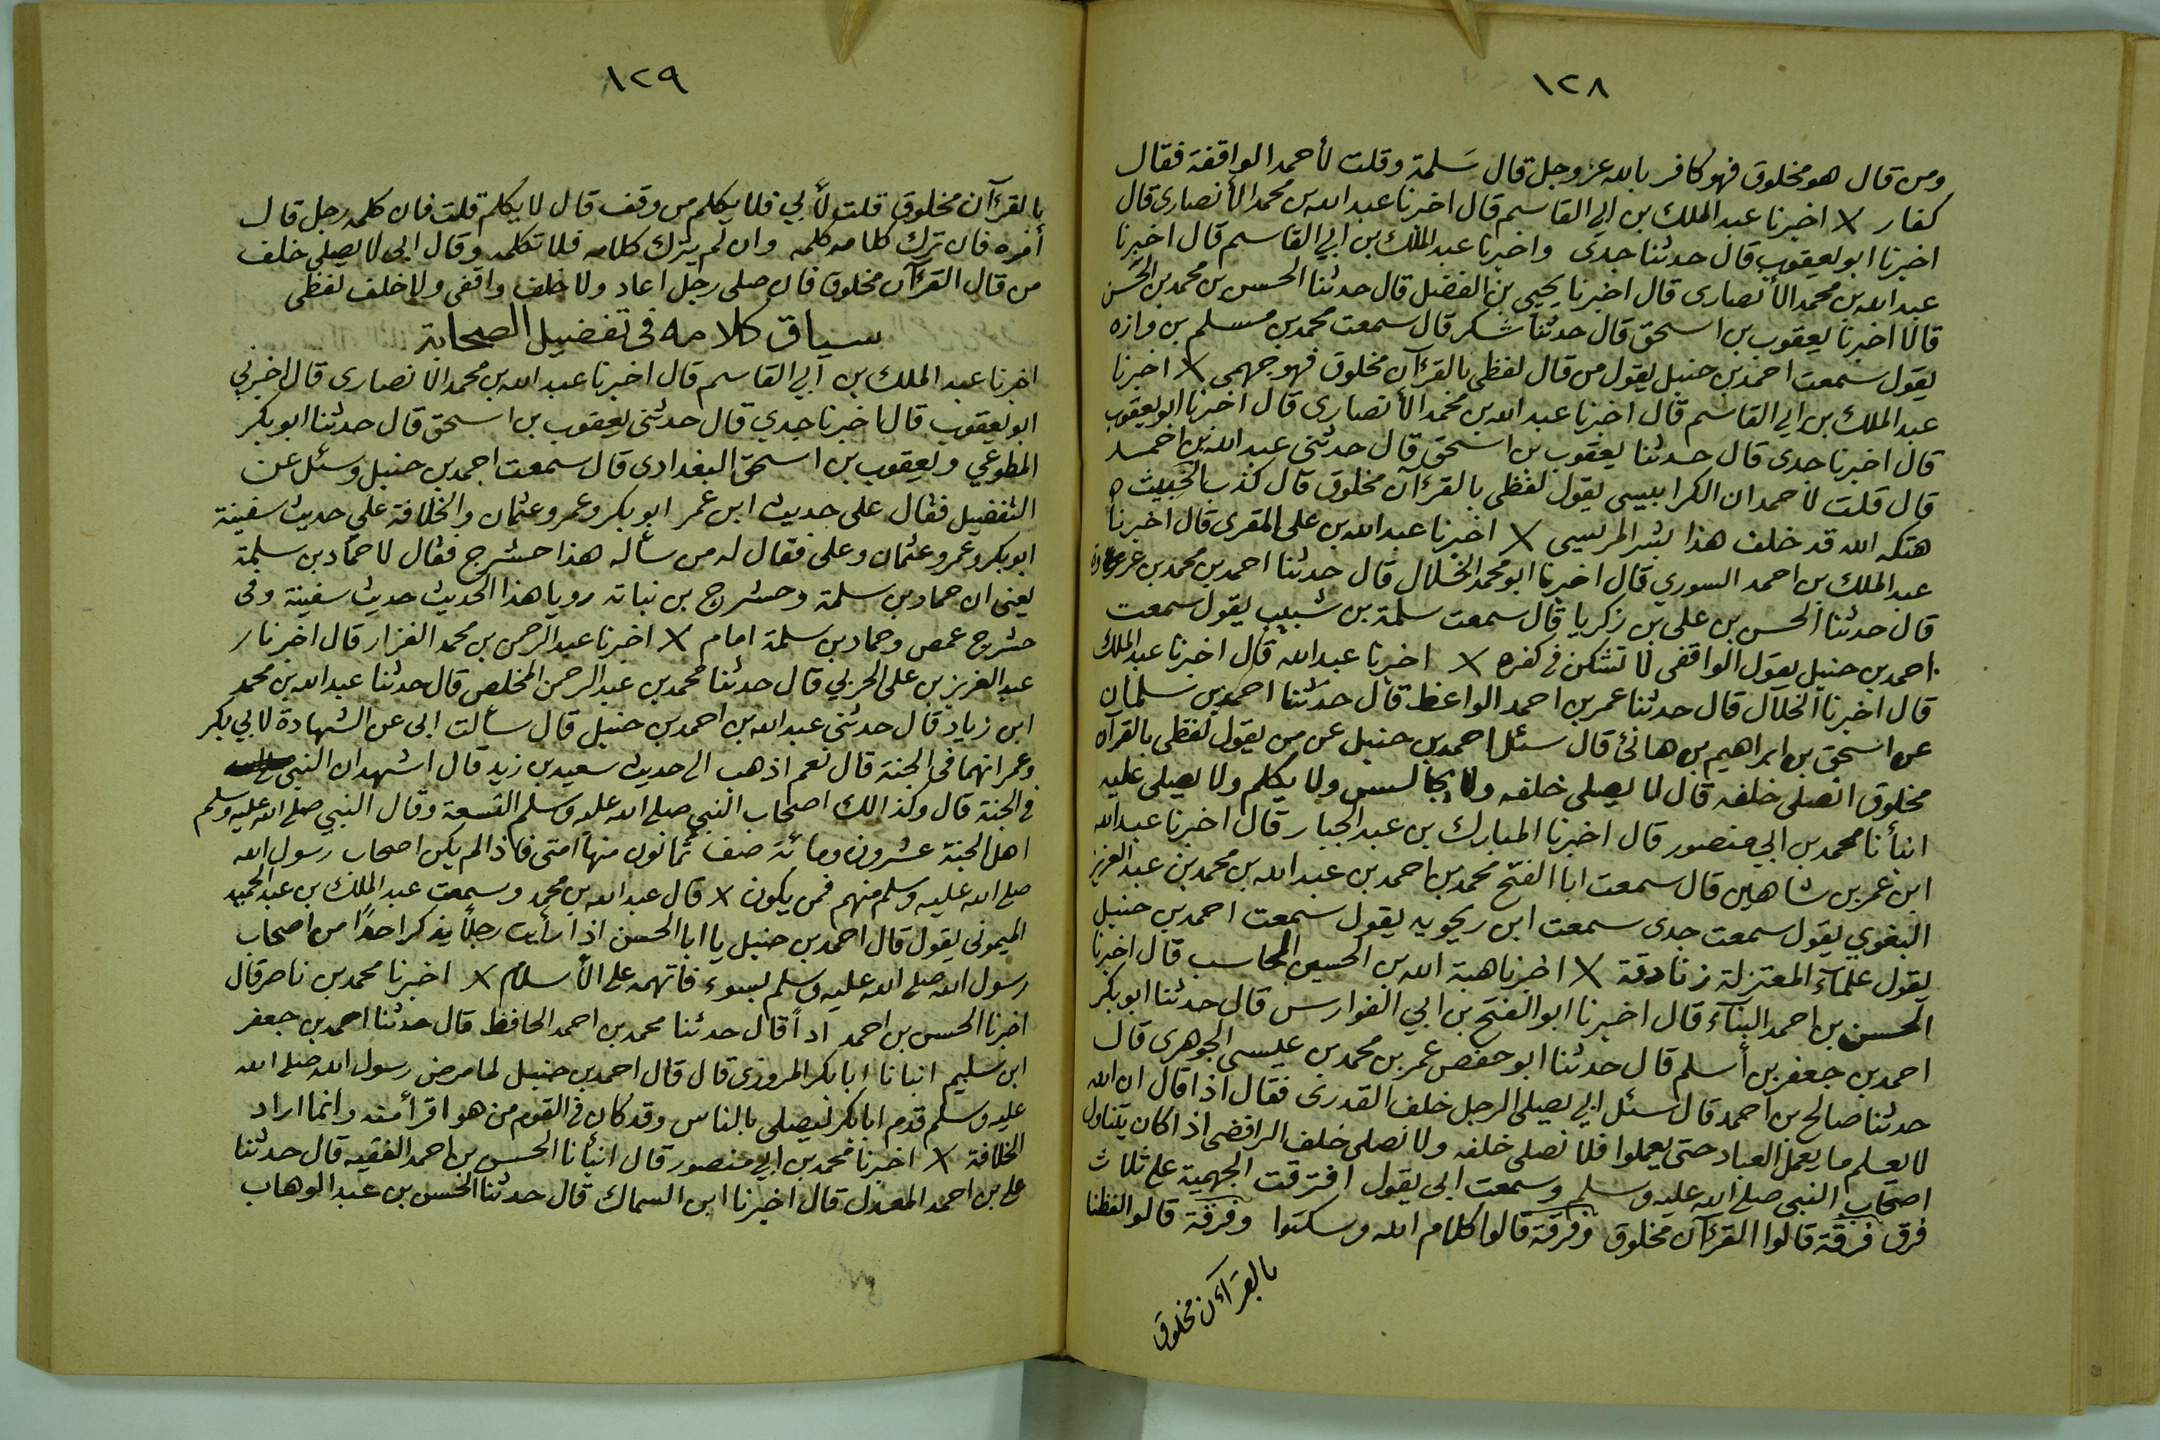 ١٢٨
ومن قال هو مخلوق فهو كافر بالله عز وجل قال سَلمة وقلت لأحمد الواقفة فقال
كفار × اخبرنا عبد الملك بن ابي القاسم قال اخبرنا عبد الله بن محمد الأنصاري قال
اخبرنا ابو يعقوب قال حدثنا جدى واخبرنا عبد الملك بن ابي القاسم قال اخبرنا
عبد الله بن محمد الأنصارى قال اخبرنا يحيى بن الفضل قال حدثنا الحسن بن محمد بن الحسن
قالا اخبرنا يعقوب بن اسحق قال حدثنا شكر قال سمعت محمد بن مسلم بن وازه
يقول سمعت احمد بن حنبل يقول من قال لفظى بالقرآن مخلوق فهو جهمى × اخبرنا
عبد الملك بن ابي القاسم قال اخبرنا عبد الله بن محمد الأنصارى قال اخبرنا ابو يعقوب
قال اخبرنا جدى قال حدثنا يعقوب بن اسحق قال حدثنى عبد الله بن احمد
قال قلت لأحمد ان الكرابيسى يقول لفظى بالقرآن مخلوق قال كذب الخبيث
هتكه الله قد خلف هذا بشر المريسى × اخبرنا عبد الله بن على المقرى قال اخبرنا
عبد الملك بن احمد السورى قال اخبرنا ابو محمد الخلال قال حدثنا احمد بن محمد بن
قال حدثنا الحسن بن على بن زكريا قال سمعت سلمة بن شبيب يقول سمعت
احمد بن حنبل يقول الواقفى لا تشكن فى كفره × اخبرنا عبد الله قال اخبرنا عبد الملك
قال اخبرنا الخلال قال حدثنا عمر بن احمد الواعظ قال حدثنا احمد بن سلمان
عن اسحق بن ابراهيم بن هانئ قال سئل احمد بن حنبل عن من يقول لفظى بالقرآن
مخلوق ايصلى خلفه قال لا يصلى خلفه ولا يجالس ولا يكلم ولا يصلى عليه
انبأنا محمد بن ابي منصور قال اخبرنا المبارك بن عبد الجبار قال اخبرنا عبد الله
ابن عمر بن شاهين قال سمعت ابا الفتح محمد بن احمد بن عبد الله بن محمد بن عبد العزيز
البغوي يقول سمعت جدى سمعت ابن ريجويه يقول سمعت احمد بن حنبل
يقول علماء المعتزلة زنادقة × اخبرنا هبة الله بن الحسين الحاسب قال اخبرنا
الحسن بن احمد البناء قال اخبرنا ابو الفتح بن ابي الفوارس قال حدثنا ابو بكر
احمد بن جعفر بن أسلم قال حدثنا ابو حفص عمر بن محمد بن عيسى الجوهرى قال
حدثنا صالح بن احمد قال سئل ابي يصلى الرجل خلف القدرى فقال اذا قال ان الله
لا يعلم ما يعمل العباد حتى يعملوا فلا نصلى خلفه ولا نصلى خلف الرافضى اذا كان يتناول
اصحاب النبى صلى الله عليه وسلم وسمعت ابى يقول افترقت الجهمية على ثلاث
فرق فرقة قالوا القرآن مخلوق وفرقة قالوا كلام الله وسكتوا وفرقة قالوا لفظنا
بالقرآن مخلوق
١٢٩
بالقرآن مخلوق قلت لأبي فلا يكلم من وقف قال لا يكلم قلت فان كلمه رجل قال
أمره فان ترك كلامه كلمه وان لم يترك كلامه فلا تكلمه وقال ابى لا يصلى خلف
من قال القرآن مخلوق فان صلى رجل اعاد ولا خلف واقفى ولا خلف لفظى
سياق كلامه فى تفضيل الصحابة
اخبرنا عبد الملك بن ابي القاسم قال اخبرنا عبد الله بن محمد الانصارى قال اخبرني
ابو يعقوب قال اخبرنا جدي قال حدثنى يعقوب بن اسحق قال حدثنا ابو بكر
المطوعي ويعقوب بن اسحق البغدادى قال سمعت احمد بن حنبل وسئل عن
التفضيل فقال على حديث ابن عمر ابو بكر وعمر وعثمان والخلافة على حديث سفينة
ابو بكر وعمر وعثمان وعلى فقال له من سأله هذا حشرج فقال لا حماد بن سلمة
يعنى ان حماد بن سلمة وحشرج بن نباته رويا هذا الحديث حديث سفينة وفى
حشرج غمص وحماد بن سلمة امام × اخبرنا عبد الرحمن بن محمد الفزار قال اخبرنا
عبد العزيز بن على الحربي قال حدثنا محمد بن عبد الرحمن المخلص قال حدثنا عبد الله بن محمد
ابن زياد قال حدثنى عبد الله بن احمد بن حنبل قال سألت ابى عن الشهادة لابي بكر
وعمر انهما فى الجنة قال نعم اذهب الى حديث سعيد بن زيد قال اشهد ان النبى
فى الجنة قال وكذالك اصحاب النبى صلى الله عليه وسلم التسعة وقال النبى صلى الله عليه وسلم
اهل الجنة عشرون ومائة صف ثمانون منها امتى فاذا لم يكن اصحاب رسول الله
صلى الله عليه وسلم منهم فمن يكون × قال عبد الله بن محمد وسمعت عبد الملك بن عبد الحميد
الميمونى يقول قال احمد بن حنبل يا ابا الحسن اذا رأيت رجلاً يذكر احدًا من اصحاب
رسول الله صلى الله عليه وسلم بسوء فاتهمه على الأسلام × اخبرنا محمد بن ناصر قال
اخبرنا الحسن بن احمد اداً قال حدثنا محمد بن احمد الحافظ قال حدثنا احمد بن جعفر
ابن سليم انبانا ابا بكر المروزى قال قال احمد بن حنبل لما مرض رسول الله صلى الله
عليه وسلم قدم ابا بكر ليصلى بالناس وقد كان فى القوم من هو اقرأ منه وانما اراد
الخلافة × اخبرنا محمد بن ابي منصور قال انبأنا الحسن بن احمد الفقيه قال حدثنا
على بن احمد المعدل قال اخبرنا ابن السماك قال حدثنا الحسن بن عبد الوهاب